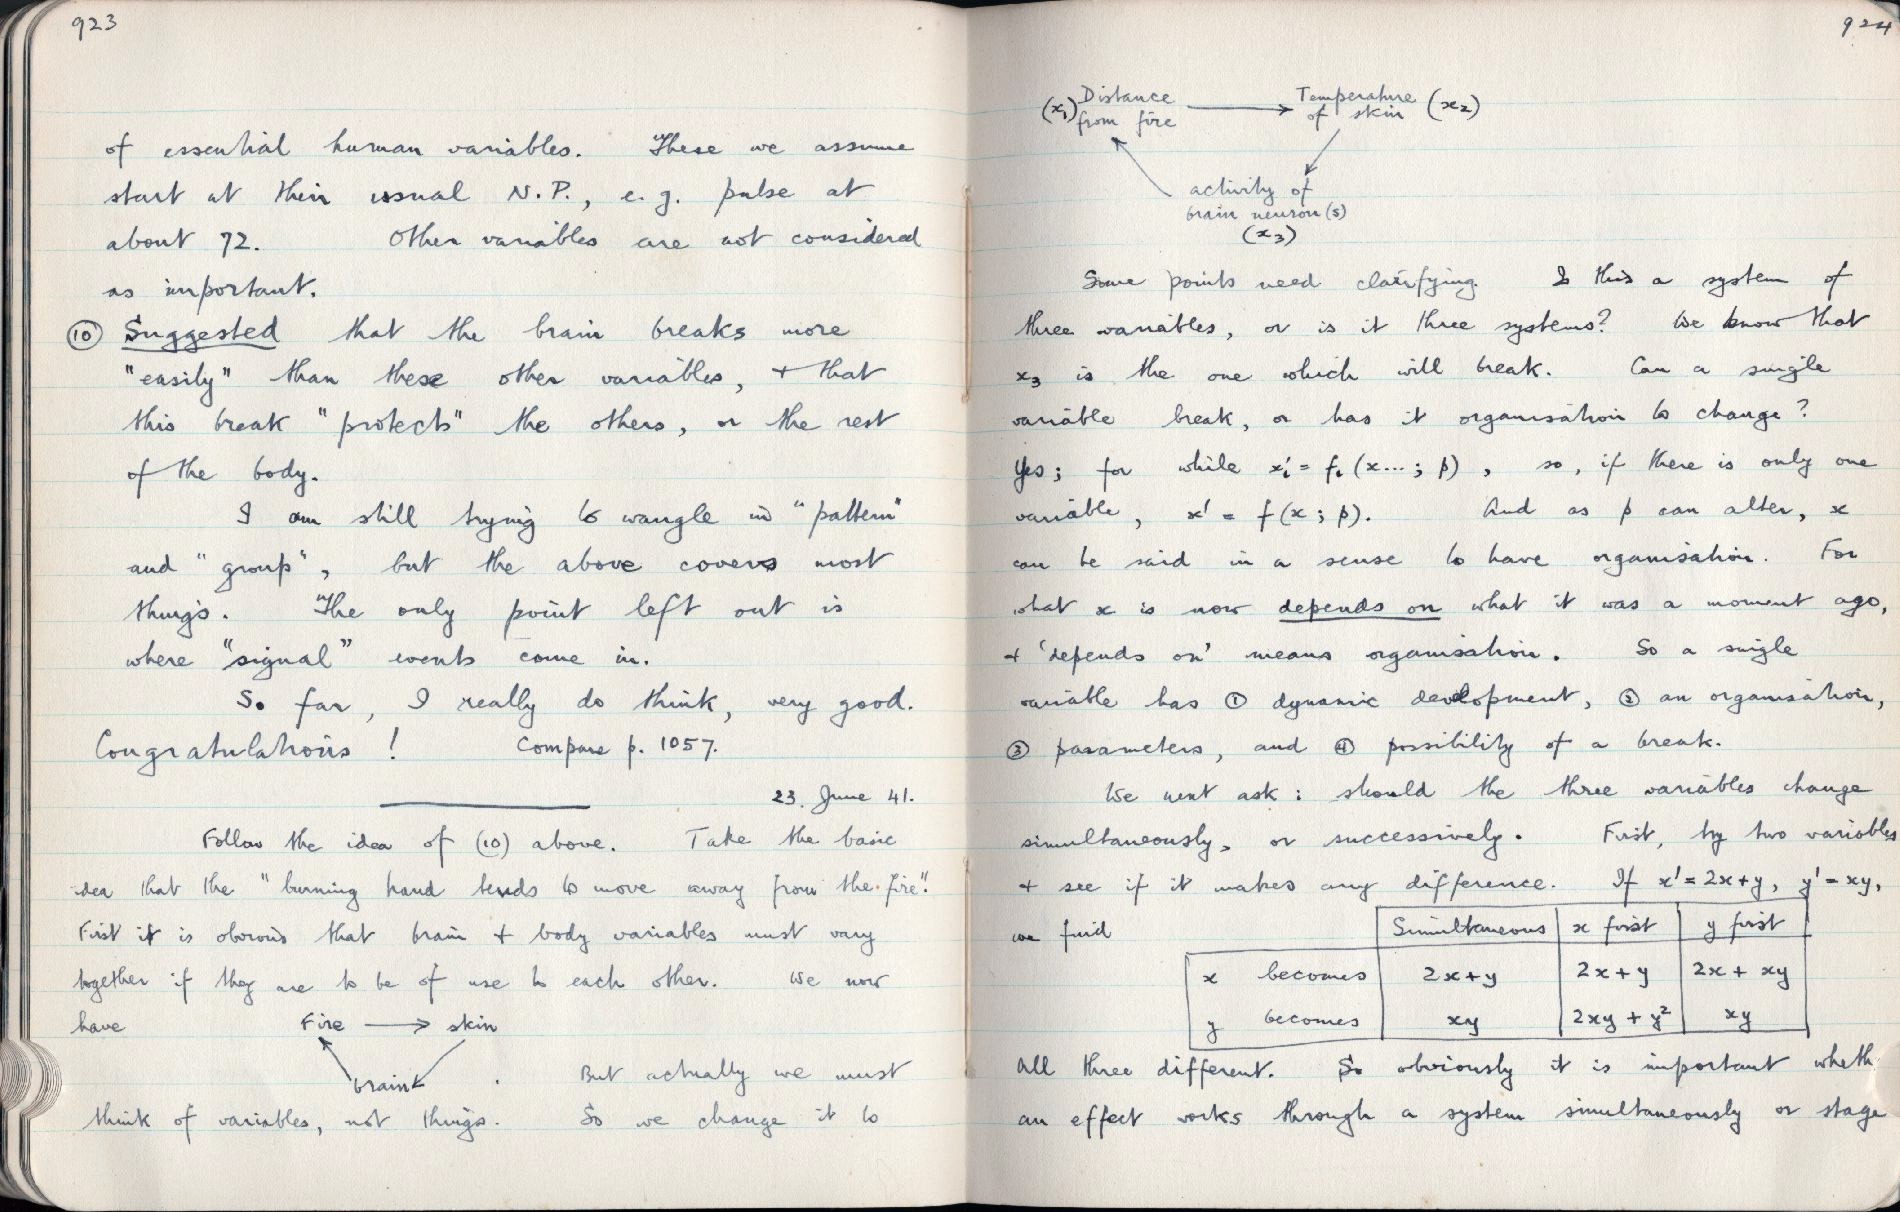 923
of essential human variables. These we assume
start at their usual N.P., e.g. pulse at
about 72. Other variables are not considered
as important.
⑩ Suggested that the brain breaks more
"easily" than these other variables, + that
this break "protects" the others, or the rest
of the body.
I am still trying to wangle in "pattern"
and "group", but the above covers most
things. The only point left out is
where "signal" events come in.
So far, I really do think, very good.
Congratulations! Compare p. 1057.
23. June 41.
Follow the idea of (10) above. Take the basic
idea that the "burning hand tends to move away from the fire".
First it is obvious that brain + body variables must vary
together if they are to be of use to each other. We now
have Fire → skin
brain . But actually we must
think of variables, not things. So we change it to
924
(x₁) Distance → Temperature (x₂)
from fire of skin
activity of
brain neuron(s)
(x₃)
Some points need clarifying. Is this a system of
three variables, or is it three systems? We know that
x₃ is the one which will break. Can a single
variable break, or has it organisation to change?
Yes; for while xᵢ' = fᵢ(x...; p), so, if there is only one
variable, x' = f(x; p). And as p can alter, x
can be said in a sense to have organisation. For
what x is now depends on what it was a moment ago,
+ 'depends on' means organisation. So a single
variable has ① dynamic development, ② an organisation,
③ parameters, and ④ possibility of a break.
We next ask: should the three variables change
simultaneously, or successively. First, try two variables
+ see if it makes any difference. If x' = 2x+y, y' = xy,
we find Simultaneous x first y first
x becomes 2x+y 2x+y 2x + xy
y becomes xy 2xy + y² xy
All three different. So obviously it is important wheth
an effect works through a system simultaneously or stage